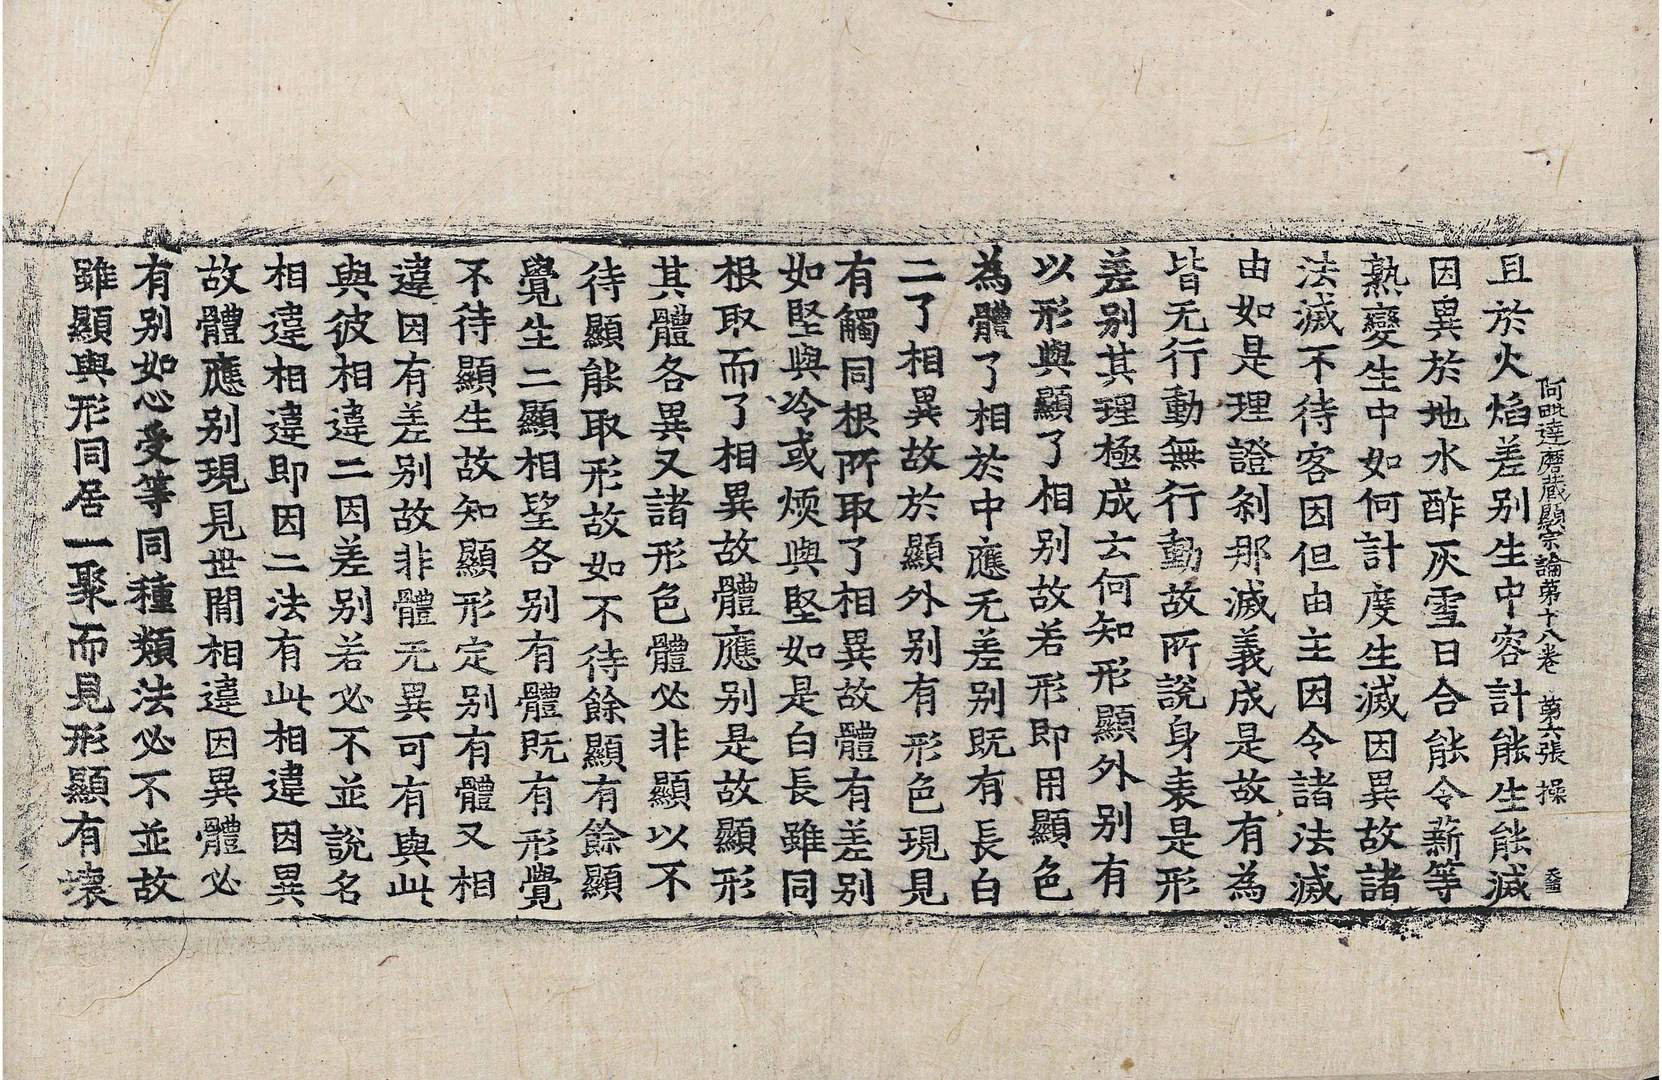 阿毗達磨藏顯宗論第十八卷　第六張　操
且於火焰差別生中容計能生能滅
因異於地水酢灰雪日合能令薪等
熟變生中如何計度生滅因異故諸
法滅不待客因但由主因令諸法滅
由如是理證刹那滅義成是故有為
皆无行動無行動故所說身表是形
差別其理極成云何知形顯外別有
以形與顯了相別故若形即用顯色
為體了相於中應无差別既有長白
二了相異故於顯外別有形色現見
有觸同根所取了相異故體有差別
如堅與冷或煗與堅如是白長雖同
根取而了相異故體應別是故顯形
其體各異又諸形色體必非顯以不
待顯能取形故如不待餘顯有餘顯
覺生二顯相望各別有體既有形覺
不待顯生故知顯形定別有體又相
違因有差別故非體无異可有與此
與彼相違二因差別若必不並說名
相違相違即因二法有此相違因異
故體應別現見世間相違因異體必
有別如心受等同種類法必不並故
雖顯與形同居一聚而見形顯有壞